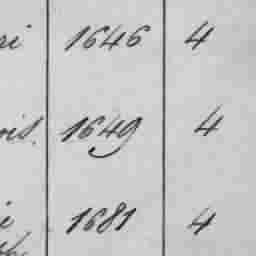 ri 1646 4
vis. 1649 4
i 1681 4